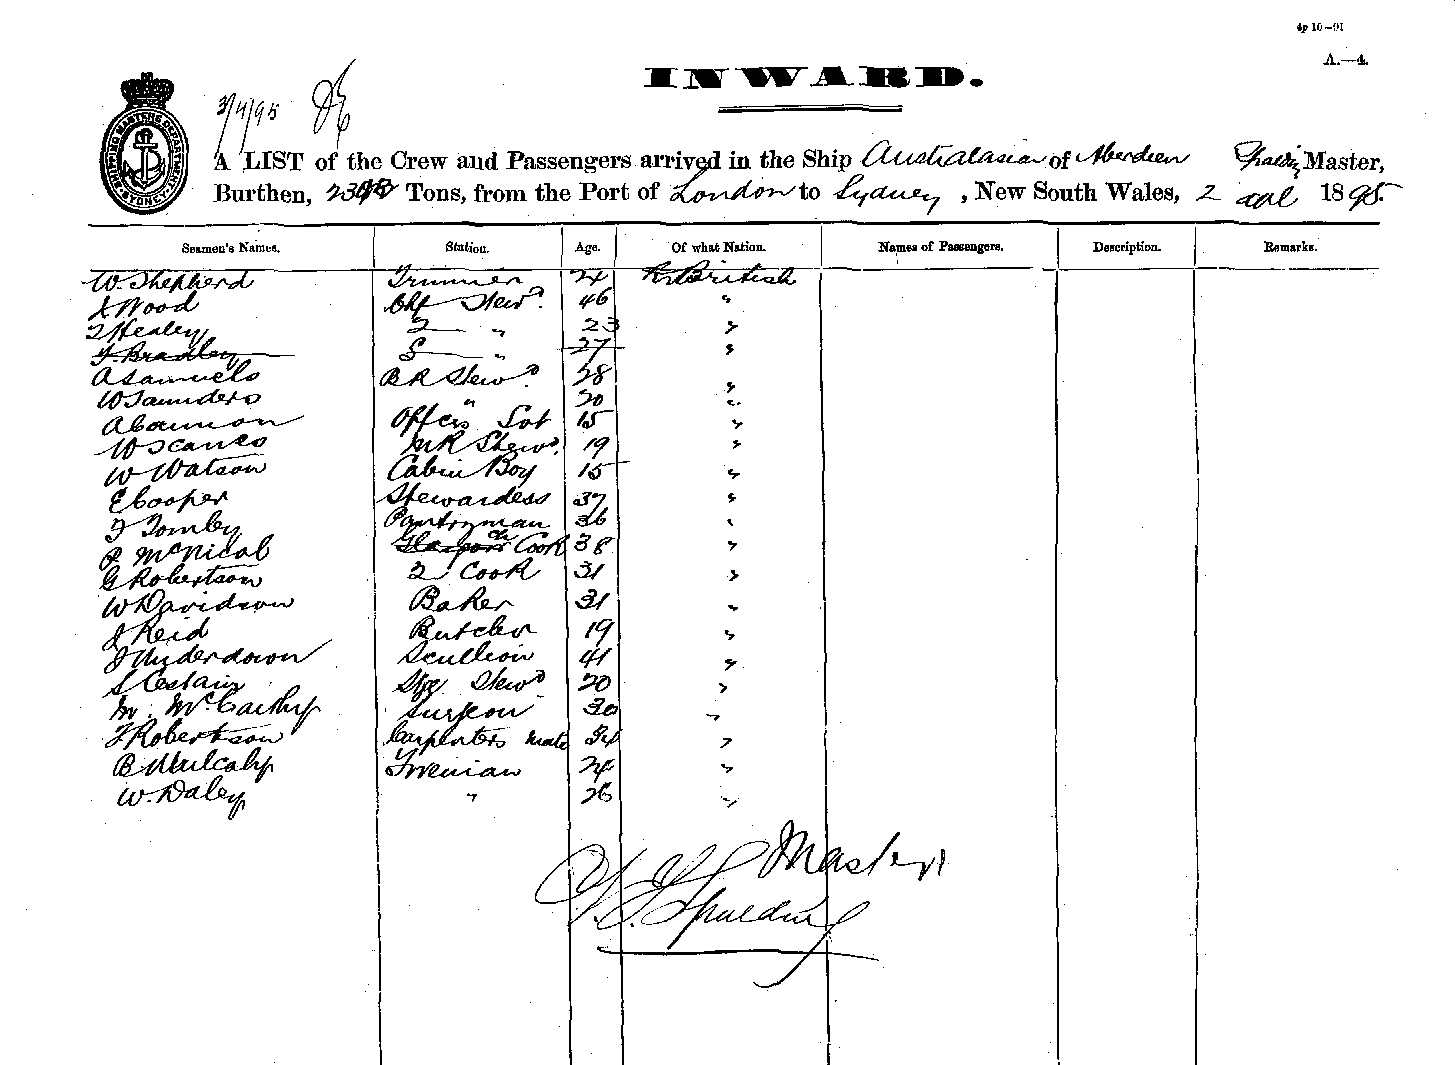 4p 10-91
A.—4.
INWARD.
SHIPPING MASTERS DEPARTMENT SYDNEY
3/4/95
A LIST of the Crew and Passengers arrived in the Ship Australasian of Aberdeen Spalding Master,
Burthen, Tons, from the Port of London to Sydney, New South Wales, 2 1895.
Seamen's Names. Station. Age. Of what Nation. Names of Passengers. Description. Remarks.
W. Shepherd Trimmer 24 British
Wood Chf Stewd. 46 "
Healey 2 " 23 "
Bradley " 27 "
A Samuels B R Stewd. 28 "
W Saunders " 20 "
A Cannon Offcrs 15 "
W M R Stewd. 19 "
W Watson Cabin Boy 15 "
E Cooper Stewardess 37 "
Tomley Pantryman 36 "
McNicol Cook 38 "
G Robertson 2 Cook 31 "
W Davidson Baker 31 "
J Reid Butcher 19 "
J Underdown Scullion 41 "
S Stge Stewd 20 "
M. McCarthy Surgeon 30 "
Robertson Carpenters Mate 34 "
B Mulcahy Fireman 24 "
W. Daley " 26 "
Master
Spalding